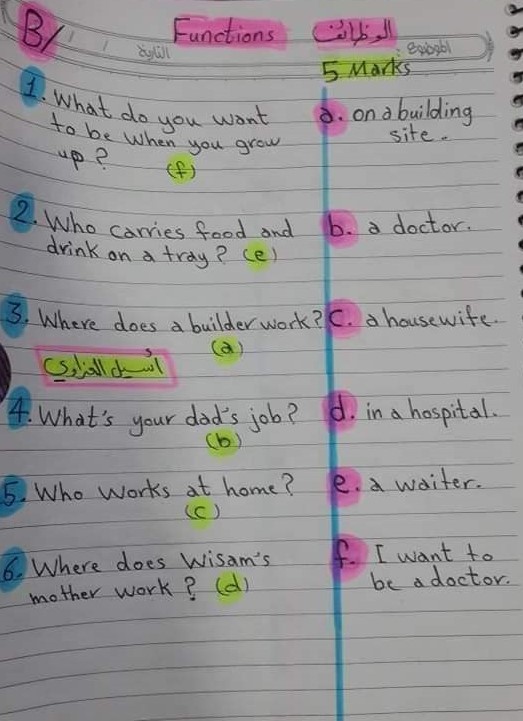 B/ Functions الوظائف
التاريخ الموضوع:
5 Marks
1. What do you want
to be when you grow
up?
(f)
a. on a building
site.
2. Who carries food and
drink on a tray? (e)
b. a doctor.
3. Where does a builder work?
(a)
c. a housewife.
أسيل العزاوي
4. What's your dad's job?
(b)
d. in a hospital.
5. Who works at home?
(c)
e. a waiter.
6. Where does Wisam's
mother work? (d)
f. I want to
be a doctor.